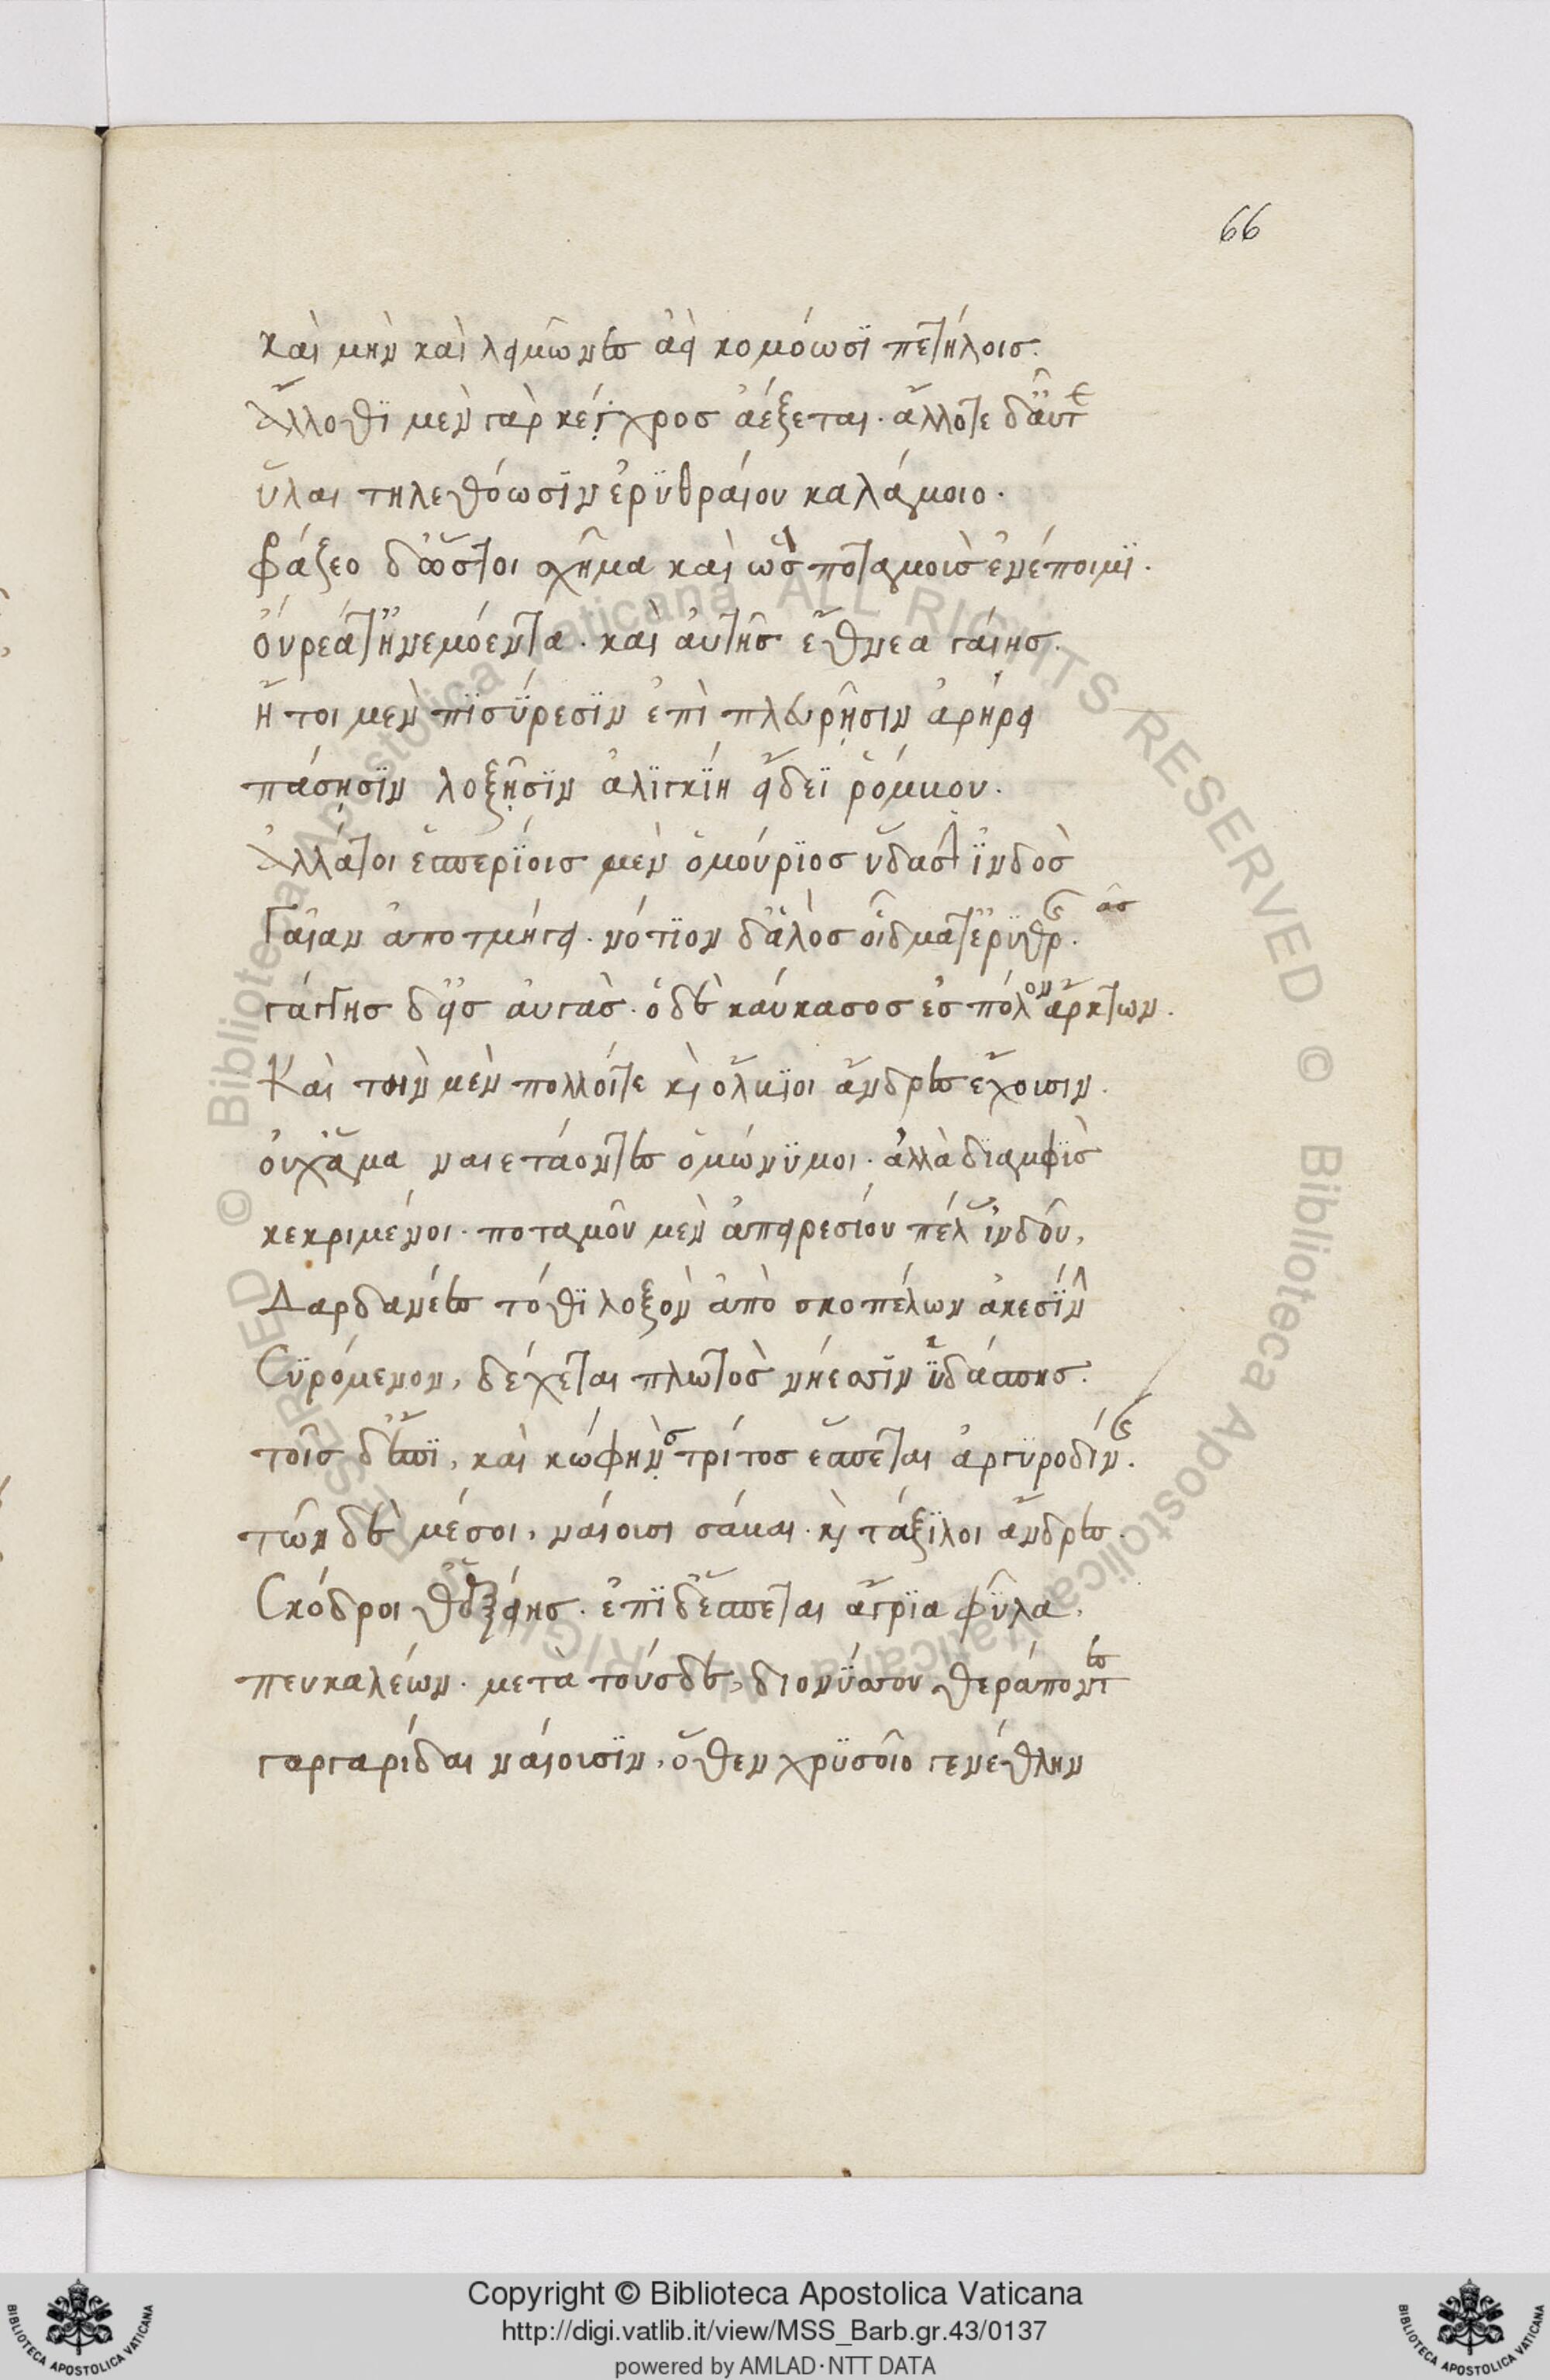 66
καὶ μὴν καὶ λειμῶνες ἀεὶ κομόωσϊ πετήλοισ.
Ἄλλοθϊ μὲν γὰρ κέγχροσ ἀέξεται· ἄλλοτε δ᾽ αὖτε
ὗλαι τηλεθόωσϊν ἐρϋθραίου καλάμοιο·
φράζεο δ᾽ ὥς τοι σχῆμα καὶ ὡσ ποταμοὺσ ἐνέποιμϊ.
ὄυρεά τ᾽ ἠνεμόεντα· καὶ ἀυτῆσ ἔθνεα γαίησ.
Ἤ τοι μὲν πϊσύρεσϊν ἐπὶ πλευρῆσιν ἀρηρει
πάσησϊν λοξῆσϊν ἀλϊγκΐη εἴδεϊ ῥόμβου.
Ἀλλά τοι ἑσπερΐοισ μὲν ὁμούρϊοσ ὕδασιν ἰνδὸσ
Γαῖαν ἀποτμήγει· νότϊον δ᾽ ἁλὸσ οἶδμα τ᾽ ἐρϋθρῆς.
ᾶσ
γάγγησ δ᾽ εἰσ ἀυγὰσ· ὁ δὲ καύκασοσ ἐσ πόλον ἄρκτων.
Καὶ τὴν μὲν πολλοί τε καὶ ὄλβϊοι ἄνδρες ἔχουσιν.
ὀυχ ἅμα ναιετάοντες ὁμώνϋμοι· ἀλλὰ δϊαμφὶσ
κεκριμένοι· ποταμοῦ μὲν ἀπειρεσίου πέλας ἰνδοῦ,
Δαρδανέες τόθϊ λοξὸν ἀπὸ σκοπέλων ἀκεσΐνην
Συρόμενον, δέχεται πλωτὸσ νήεσσϊν ὑδάσπησ.
τοῖσ δ᾽ ἐπϊ, καὶ κώφησ τρίτοσ ἕσπεται ἀργϋροδίνης.
τῶν δὲ μέσοι, ναίουσι σάβαι· καὶ τάξϊλοι ἄνδρες.
Σκόδροι θ᾽ ἑξείησ· ἐπϊ δ᾽ ἕσπεται ἄγρϊα φῦλα,
πευκαλέων· μετὰ τοὺσ δὲ, διονΰσου θεράποντες
γαργαρίδαι ναίουσϊν, ὅθεν χρϋσοῖο γενέθλην
Copyright © Biblioteca Apostolica Vaticana
http://digi.vatlib.it/view/MSS_Barb.gr.43/0137
powered by AMLAD·NTT DATA